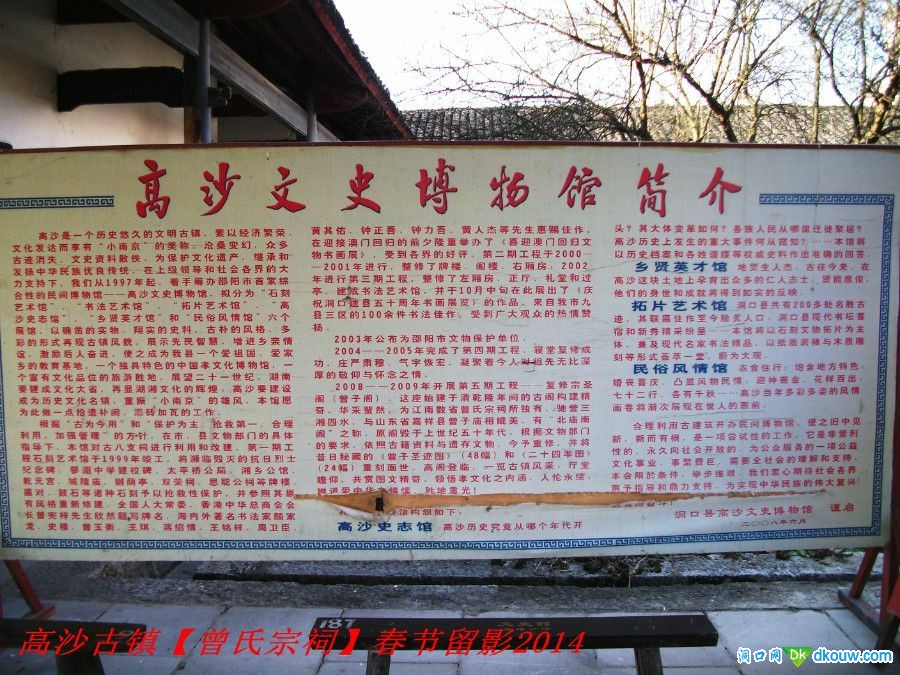 高沙文史博物馆简介
高沙是一个历史悠久的文明古镇，素以经济繁荣、
文化发达而享有“小南京”的美称，沧桑变幻，众多
古迹消失，文史资料散佚。为保护文化遗产，继承和
发扬中华民族优良传统，在上级领导和社会各界的大
力支持下，我们从1997年起，着手筹办邵阳市首家综
合性的民间博物馆——高沙文史博物馆，拟分为“石刻
艺术馆”、“书法艺术馆”、“拓片艺术馆”、“高
沙史志馆”、“乡贤英才馆”和“民俗风情馆”六个
展馆，以确凿的实物、翔实的史料、古朴的风格、多
彩的形式再现古镇风貌，展示先民智慧，增进乡亲情
谊，激励后人奋进，使之成为我县一个爱祖国、爱家
乡的教育基地，一个独具特色的中国孝文化博物馆，一
个富有文化品位的旅游胜地。展望二十一世纪，湖南
要建成文化大省，再显湖湘文化的辉煌，高沙要建设
成为历史文化名镇，重振“小南京”的雄风，本馆愿
为此做一点拾遗补阙、添砖加瓦的工作。
根据“古为今用”和“保护为主，抢救第一，合理
利用，加强管理”的方针，在市、县文物部门的具体
指导下，本馆对古八支祠进行利用和改建。第一期工
程石刻艺术馆于1999年竣工，将濒临毁灭的抗日烈士
纪念碑、蓼湄中学建校碑、太平桥公局、湘乡公馆、
乾元宫、城隍庙、樾荫亭、双荣祠、思聪公祠等牌楼
画对、鼓石等诸种石刻予以抢救性保护，并参照其原
有风格重新修建。全国人大常委、香港中华总商会会
长曾宪梓先生欣然题写牌名，海内外著名书法家顾家
龙、史穆、曾玉衡、王琪、蒋绍情、王铭祥、周卫臣、
黄其佑、钟正吾、钟力吾、黄人杰等先生惠赐佳作。
在迎接澳门回归的前夕隆重举办了《喜迎澳门回归文
物书画展》，受到各界的好评。第二期工程于2000—
—2001年进行，整修了牌楼、阁楼、右厢房。2002
年进行第三期工程，整修了左厢房、正厅、礼堂和过
亭、庭院，并于10月中旬在此展出了《庆
祝洞口建县五十周年书画展览》的作品。来自我市九
县三区的100余件书法佳作，受到广大观众的热情赞
扬。
2003年公布为邵阳市文物保护单位。
2004——2005年完成了第四期工程。寝堂复修成
功，庄严肃穆，气宇恢宏，凝聚着今人对祖先无比深
厚的敬仰与怀念之情。
2008——2009年开展第五期工程——复修宗圣
阁（曾子阁）。这座始建于清乾隆年间的古阁构建精
奇，华采斐然，为江南数省曾氏宗祠所独有，驰誉三
湘四水，与山东省嘉祥县曾子庙相媲美，有“北庙南
阁”之称，原阁毁于上世纪五十年代。根据文物部门
的要求，依照古籍资料与遗存文物，今予重修，并将
昔日秘藏的《曾子圣迹图》（48幅）和《二十四孝图》
（24幅）重刻面世。高阁登临，一览古镇风采，厅堂
瞻仰，共赏图文精奇，领悟孝文化之内涵，人伦永续，
胜地重光！
馆构想如下：
高沙史志馆 高沙历史究竟从哪个年代开
头？其大体变革如何？各族人民从哪里迁徙聚居？
高沙历史上发生的重大事件何从窥知？……本馆将
以历史档案和各姓谱牒等权威史料作出准确的回答。
乡贤英才馆 地灵生人杰。古往今来，在
高沙这块土地上孕育出众多的仁人志士，贤能彦俊，
他们的身世和成就将得到如实的反映。
拓片艺术馆 洞口县共有200多处名胜古
迹，其联匾佳作至今脍炙人口。洞口县现代书坛耆
宿和新秀精采纷呈——本馆将以石刻文物拓片为主
体，兼及现代名家书法精品，以纸质装裱与木质雕
刻等形式荟萃一堂，蔚为大观。
民俗风情馆 衣食住行，饱含地方特色，
婚丧喜庆，凸显风物民情，迎神赛会，花样百出，
七十二行，各有千秋……高沙当年多彩多姿的风情
画卷将渐次展现在世人的面前。
合理利用古建筑开办民间博物馆，使之旧中见
新，新而有根，是一项尝试性的工作。它是非营利
性的，永久向社会开放的，为公众服务的一项公益
文化事业。事繁费巨，需要全社会的理解和支持。
本会限于条件，举步维艰。我们衷心期待社会各界
予指导和鼎力支持，为实现中华民族的伟大复兴
洞口县高沙文史博物馆 谨启
二〇〇八年六月
187
高沙古镇【曾氏宗祠】春节留影2014
洞口网 Dk dkouw.com